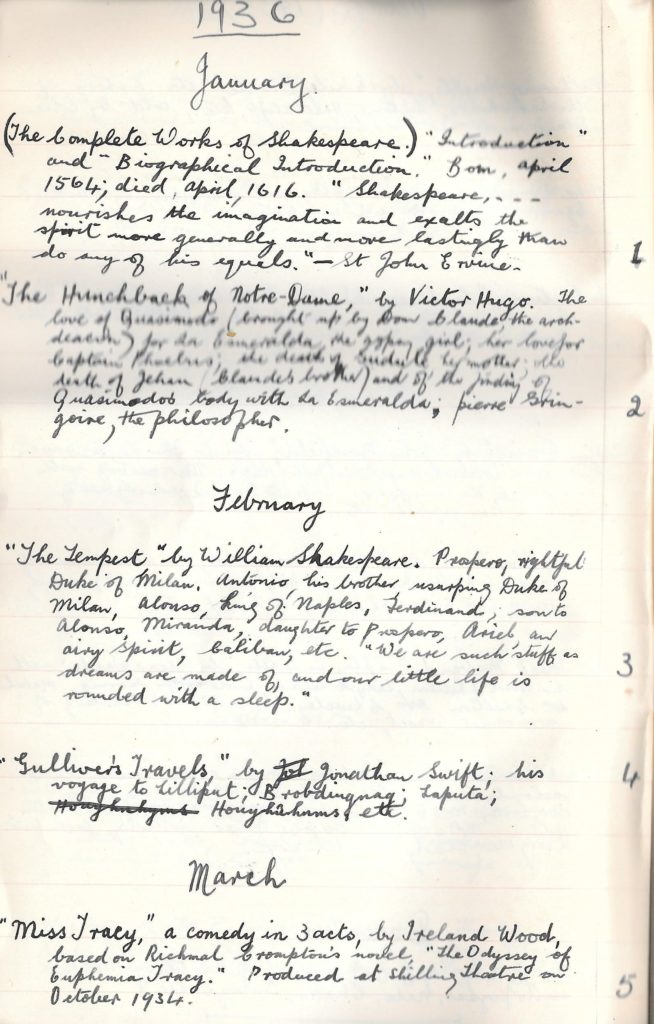 1936
January.
(The Complete Works of Shakespeare.) "Introduction"
and "Biographical Introduction." Born, april
1564; died, april, 1616. "Shakespeare, . . .
nourishes the imagination and exalts the
spirit more generally and more lastingly than
do any of his equals." — St John Ervine.
1
"The Hunchback of Notre-Dame," by Victor Hugo. The
love of Quasimodo (brought up by Dom Claude the arch-
deacon) for La Esmeralda the gypsy girl; her love for
Captain Phoebus; the death of Gudule her mother; the
death of Jehan (Claude's brother) and of the finding of
Quasimodos body with La Esmeralda; pierre Grin-
goire, the philosopher.
2
February
"The Tempest" by William Shakespeare. Prospero, rightful
Duke of Milan, Antonio, his brother usurping Duke of
Milan, Alonso, King of Naples, Ferdinand, son to
Alonso, Miranda, daughter to Prospero, Ariel, an
airy Spirit, Caliban, etc. "We are such stuff as
dreams are made of, and our little life is
rounded with a sleep."
3
"Gulliver's Travels," by Jonathan Swift; his
voyage to Lilliput; Brobdingnag; Laputa;
Houyhnhnms, etc.
4
March
"Miss Tracy," a comedy in 3 acts, by Ireland Wood,
based on Richmal Crompton's novel, "The Odyssey of
Euphemia Tracy." Produced at Shilling Theatre on
October 1934.
5